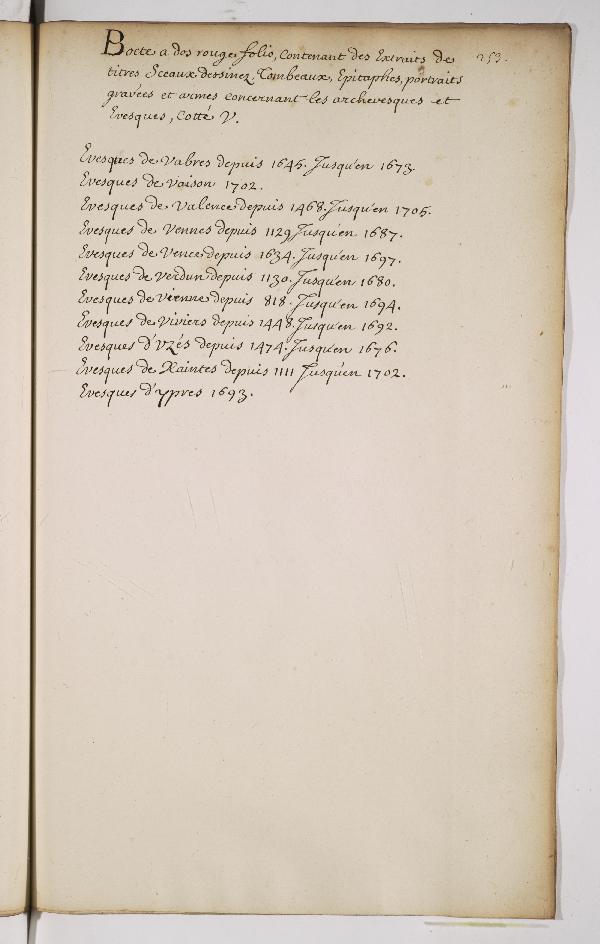 Boete a dos rouge folio, Contenant des Extraits de
253.
titres Sceaux dessinez, Tombeaux, Epitaphes, portraits
gravées et armes concernant les archevesques et
Evesques, Cotté V.
Evesques de Vabres depuis 1645. Jusqu'en 1673.
Evesques de Vaison 1702.
Evesques de Valence depuis 1468. Jusqu'en 1705.
Evesques de Vennes depuis 1129 Jusqu'en 1687.
Evesques de Vence depuis 1634. Jusqu'en 1697.
Evesques de Verdun depuis 1130. Jusqu'en 1680.
Evesques de Vienne depuis 818. Jusqu'en 1694.
Evesques de Viviers depuis 1448. Jusqu'en 1692.
Evesques d'Uzés depuis 1474. Jusqu'en 1676.
Evesques de Xaintes depuis 1111 Jusqu'en 1702.
Evesques d'ypres 1693.